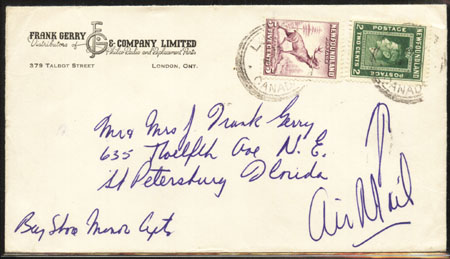 FRANK GERRY & COMPANY, LIMITED
Distributors of Philco Radio and Replacement Parts
379 TALBOT STREET LONDON, ONT.
NEWFOUNDLAND
POSTAGE
FIVE CENTS
NEWFOUNDLAND
POSTAGE
2 TWO CENTS 2
CANADA
CANADA
Mr & Mrs J Frank Gerry
635 Twelfth Ave N.E.
St Petersburg Florida
Bay Shore Manor Apts
Air Mail